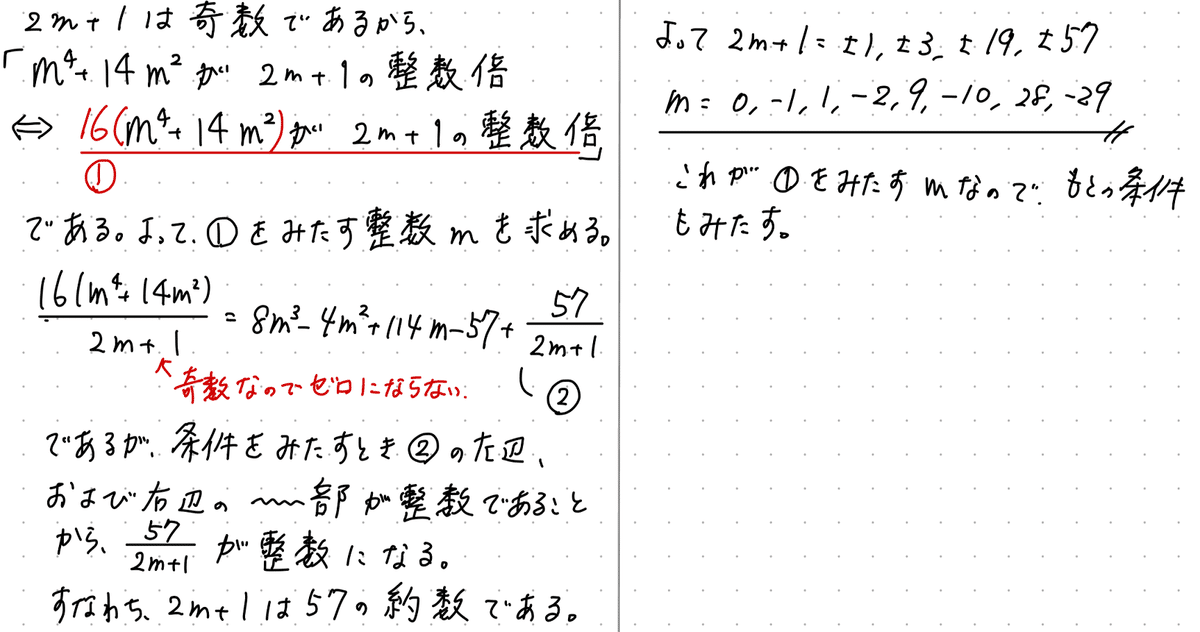 2m+1は奇数であるから、
「m⁴+14m²が 2m+1の整数倍
⇔ 16(m⁴+14m²)が 2m+1の整数倍」
①
である。よって、①をみたす整数mを求める。
16(m⁴+14m²)/2m+1 = 8m³-4m²+114m-57+57/2m+1
奇数なのでゼロにならない.
②
であるが、条件をみたすとき②の左辺、
および右辺の〰部が整数であること
から、57/2m+1 が整数になる。
すなわち、2m+1は57の約数である。
よって 2m+1=±1, ±3, ±19, ±57
m= 0, -1, 1, -2, 9, -10, 28, -29
これが①をみたすmなので、もとの条件
もみたす。